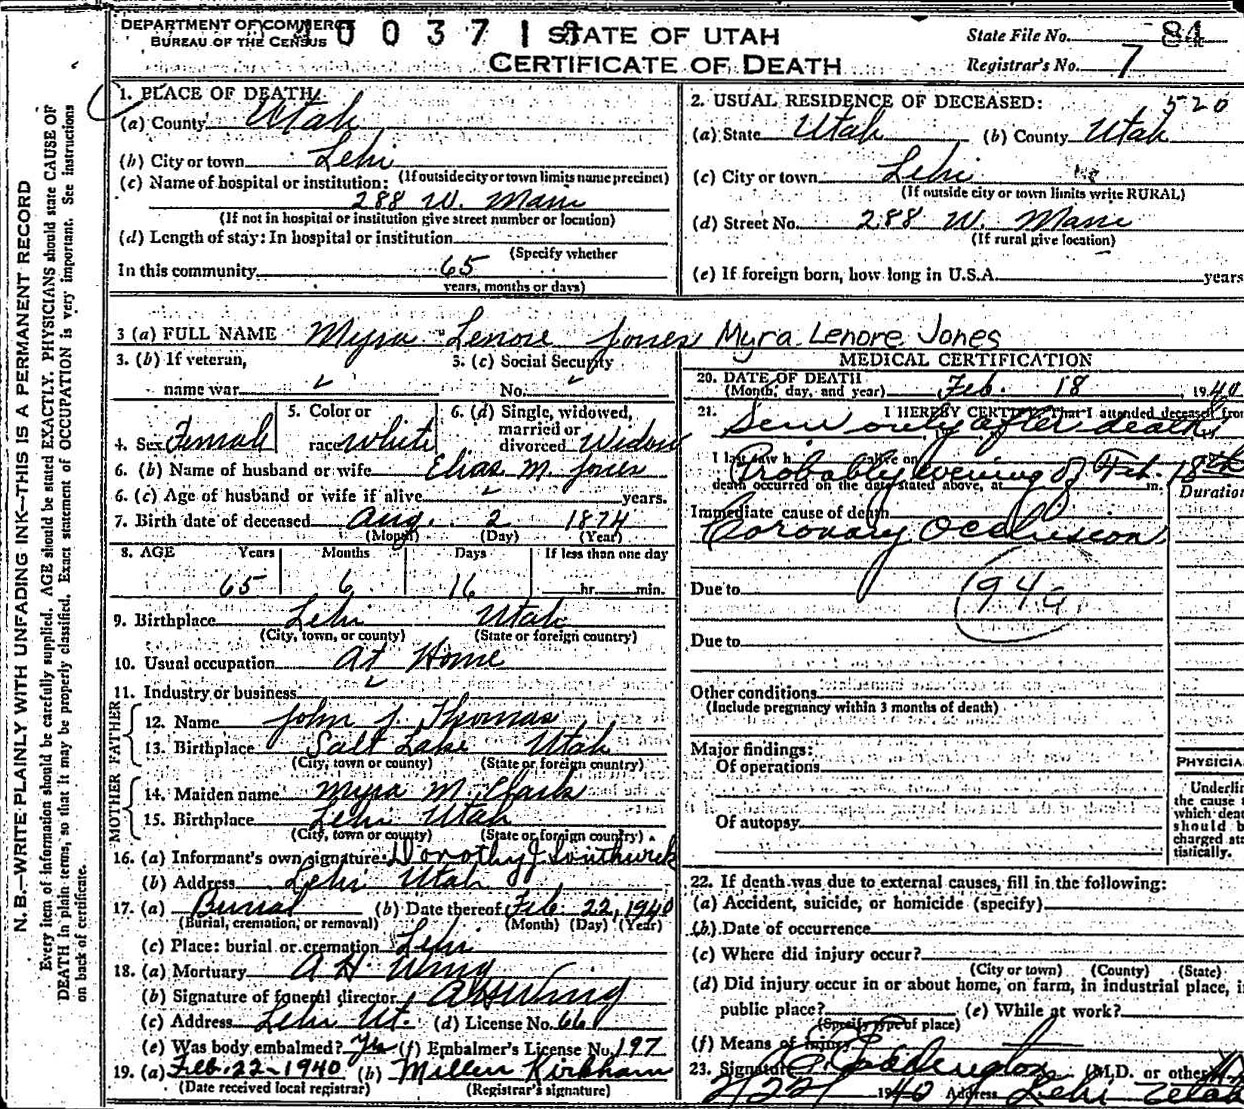 DEPARTMENT OF COMMERCE
BUREAU OF THE CENSUS
STATE OF UTAH
CERTIFICATE OF DEATH
State File No. 84
Registrar's No. 7
N. B.—WRITE PLAINLY WITH UNFADING INK—THIS IS A PERMANENT RECORD
Every item of information should be carefully supplied. AGE should be stated EXACTLY. PHYSICIANS should state CAUSE OF
DEATH in plain terms, so that it may be properly classified. Exact statement of OCCUPATION is very important. See instructions
on back of certificate.
1. PLACE OF DEATH:
(a) County Utah
(b) City or town Lehi
(If outside city or town limits name precinct)
(c) Name of hospital or institution:
288 W. Main
(If not in hospital or institution give street number or location)
(d) Length of stay: In hospital or institution
(Specify whether
In this community 65
years, months or days)
2. USUAL RESIDENCE OF DECEASED: 520
(a) State Utah (b) County Utah
(c) City or town Lehi
(If outside city or town limits write RURAL)
(d) Street No. 288 W. Main
(If rural give location)
(e) If foreign born, how long in U.S.A. years
3 (a) FULL NAME Myra Lenore Jones Myra Lenore Jones
3. (b) If veteran,
name war
3. (c) Social Security
No.
4. Sex Female
5. Color or
race White
6. (d) Single, widowed,
married or
divorced Widow
6. (b) Name of husband or wife Elias M. Jones
6. (c) Age of husband or wife if alive years.
7. Birth date of deceased Aug. 2 1874
(Month) (Day) (Year)
8. AGE Years Months Days If less than one day
65 6 16 hr. min.
9. Birthplace Lehi Utah
(City, town, or county) (State or foreign country)
10. Usual occupation At Home
11. Industry or business
FATHER
12. Name John J. Thomas
13. Birthplace Salt Lake Utah
(City, town or county) (State or foreign country)
MOTHER
14. Maiden name Myra M. Clark
15. Birthplace Lehi Utah
(City, town or county) (State or foreign country)
16. (a) Informant's own signature: Dorothy J Southwick
(b) Address Lehi Utah
17. (a) Burial (b) Date thereof Feb. 22, 1940
(Burial, cremation, or removal) (Month) (Day) (Year)
(c) Place: burial or cremation Lehi
18. (a) Mortuary A H. Wing
(b) Signature of funeral director A H Wing
(c) Address Lehi Ut. (d) License No. 66
(e) Was body embalmed? Yes (f) Embalmer's License No. 197
19. (a) Feb-22-1940 (b) Millin Kirkham
(Date received local registrar) (Registrar's signature)
MEDICAL CERTIFICATION
20. DATE OF DEATH
(Month, day, and year) Feb. 18, 1940
21. I HEREBY CERTIFY, That I attended deceased from
Seen only after death
I last saw h alive on
Probably evening of Feb. 18th
death occurred on the date stated above, at m.
Duration
Immediate cause of death
Coronary Occlusion
Due to 94a
Due to
Other conditions
(Include pregnancy within 3 months of death)
Major findings:
Of operations
Of autopsy
PHYSICIA
Underlin
the cause
which deat
should b
charged sta
tistically.
22. If death was due to external causes, fill in the following:
(a) Accident, suicide, or homicide (specify)
(b) Date of occurrence
(c) Where did injury occur?
(City or town) (County) (State)
(d) Did injury occur in or about home, on farm, in industrial place, i
public place? (e) While at work?
(Specify type of place)
(f) Means of injury
23. Signature (M.D. or other)
2/22/1940 Address Lehi Utah